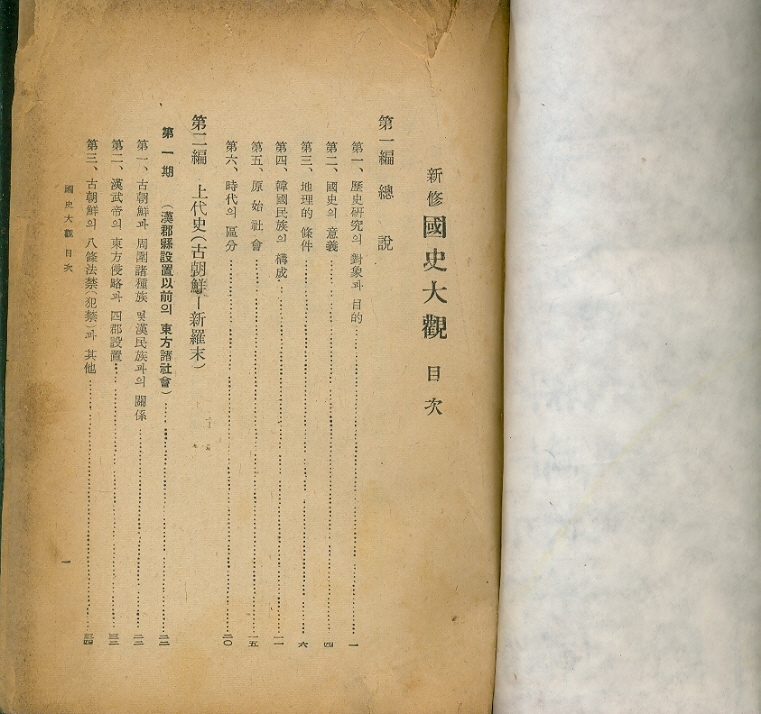 新修 國史大觀 目次
第一編 總說
第一、歷史硏究의 對象과 目的 一
第二、國史의 意義 四
第三、地理的 條件 六
第四、韓國民族의 構成 一一
第五、原始社會 一五
第六、時代의 區分 二〇
第二編 上代史(古朝鮮—新羅末)
第一期 (漢郡縣設置以前의 東方諸社會) 二二
第一、古朝鮮과 周圍諸種族 및 漢民族과의 關係 二二
第二、漢武帝의 東方侵略과 四郡設置 三三
第三、古朝鮮의 八條法禁(犯禁)과 其他 三四
國史大觀 目次
一